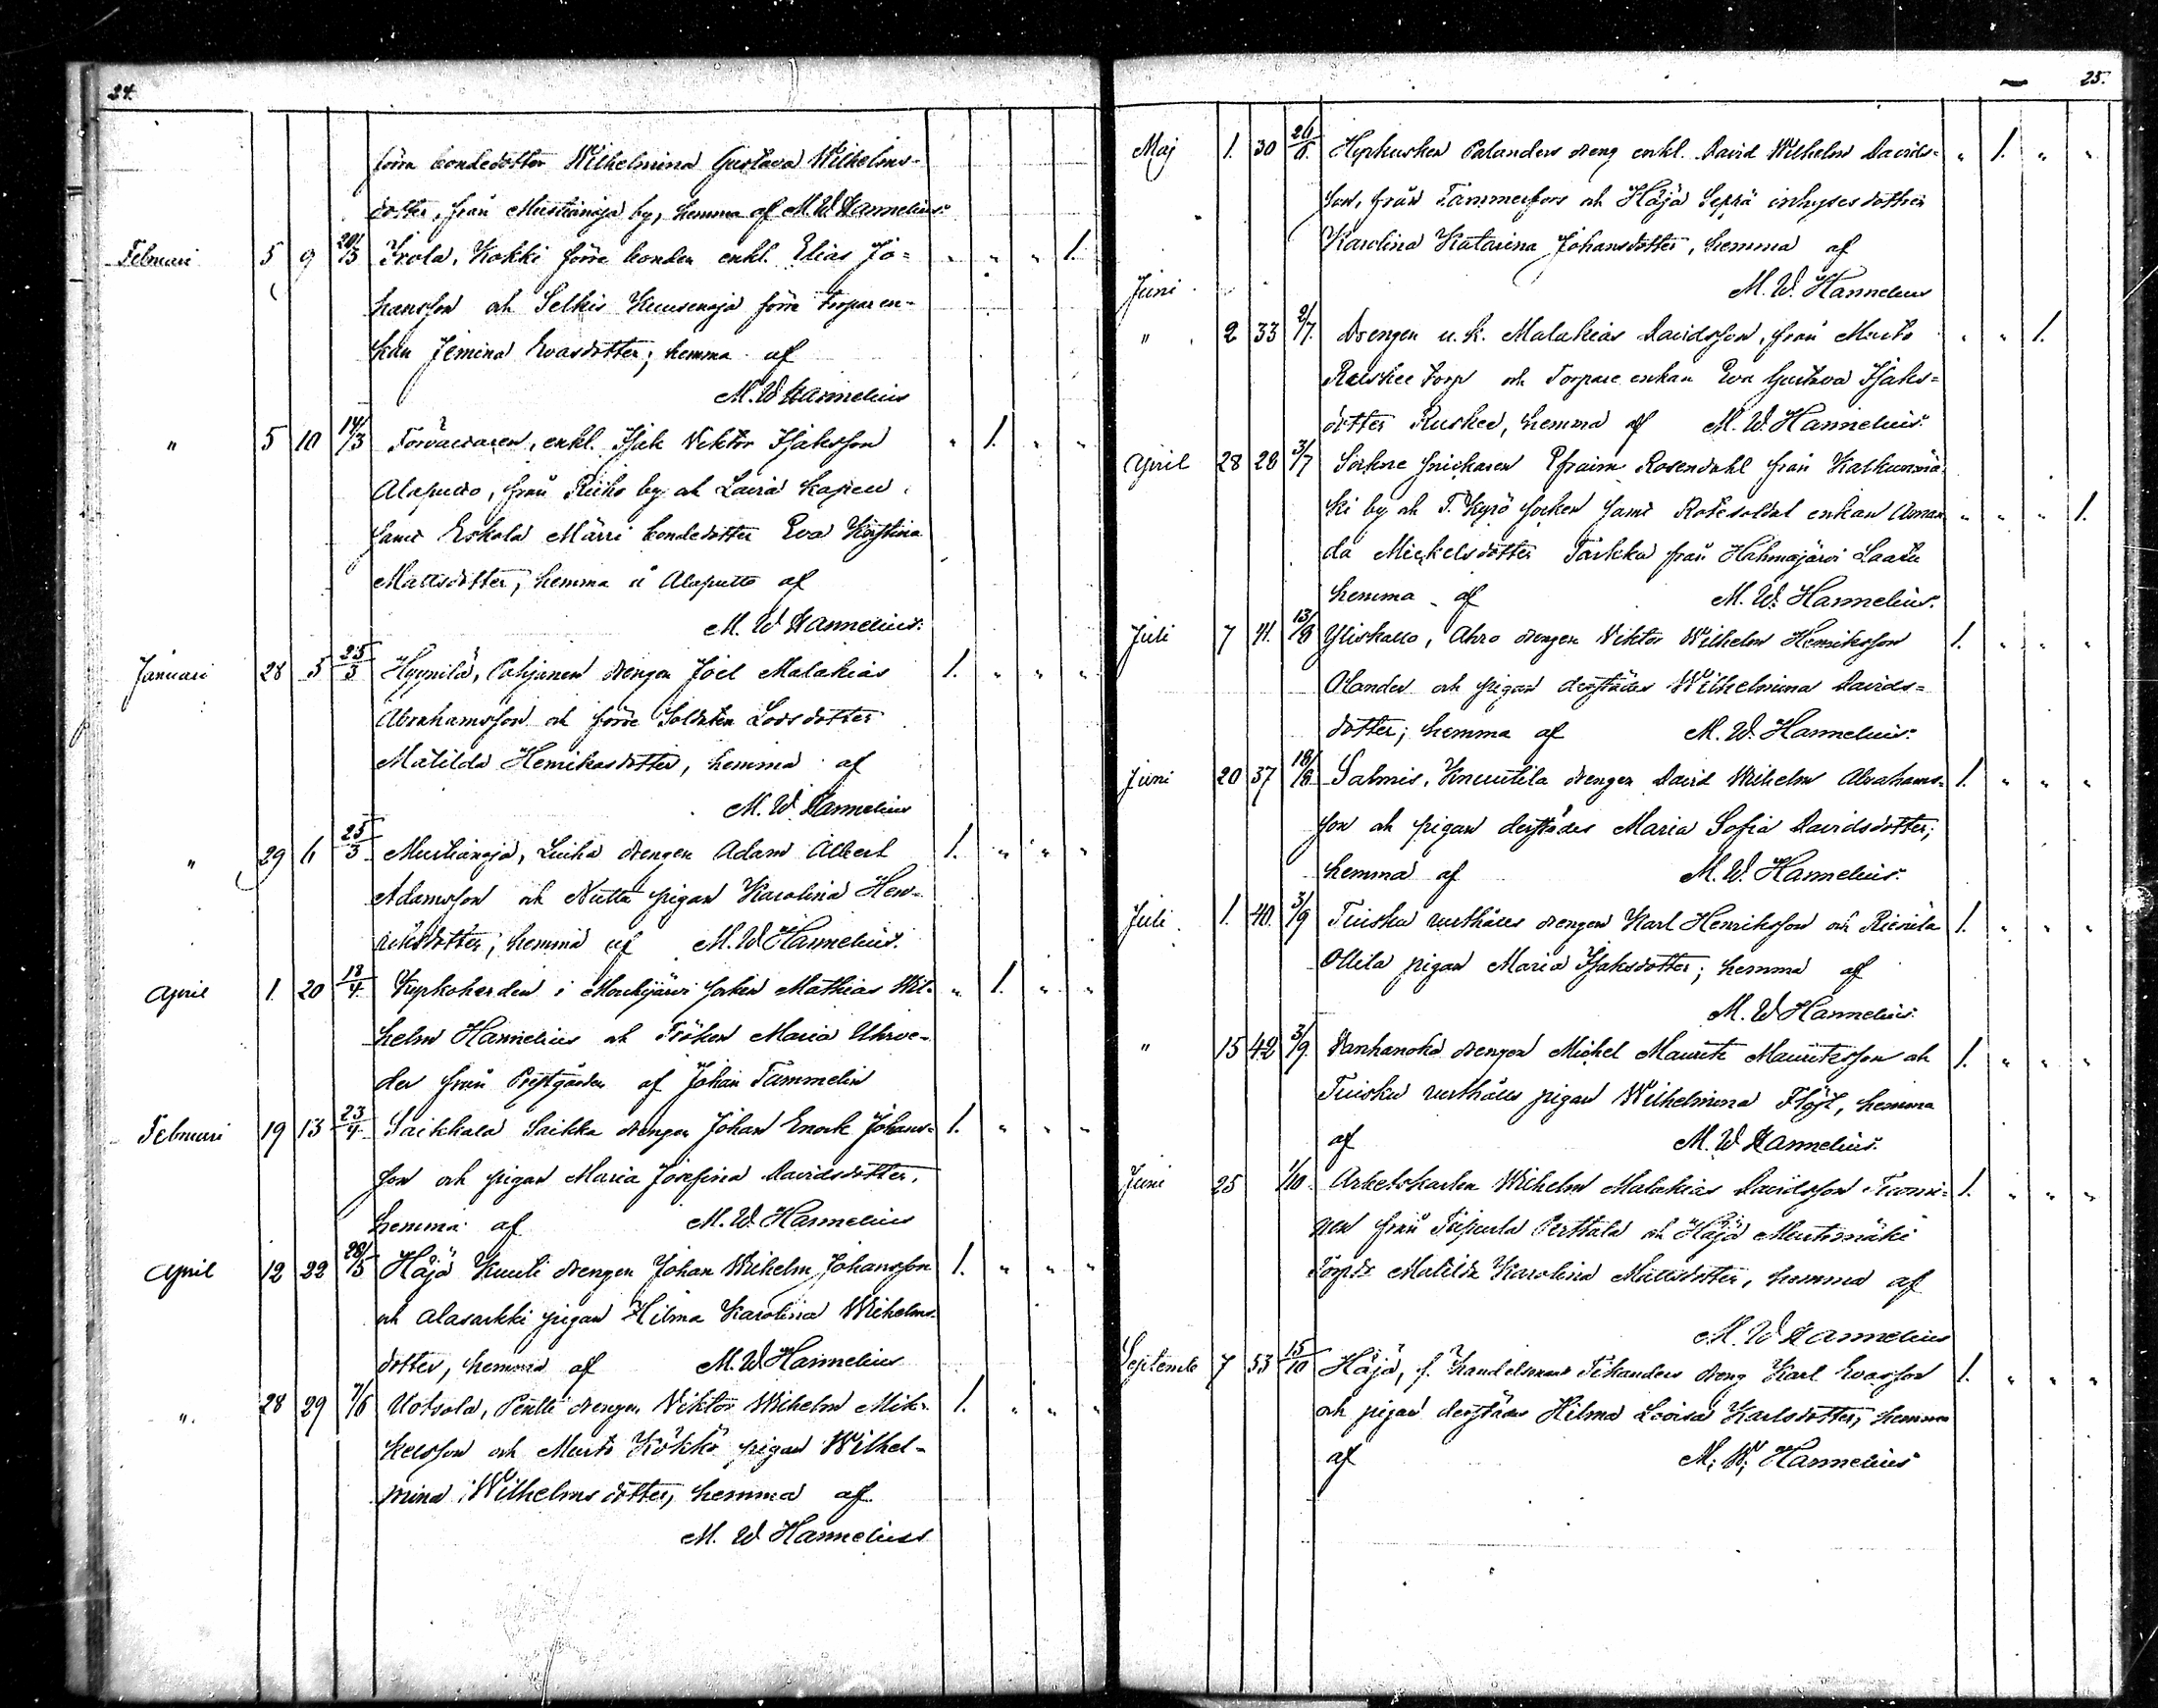 24.
förra bondedotter Wilhelmina Gustava Wilhelms-
dotter, från Mustianoja by, hemma af M. W. Hannelius.
Februari 5 9 20/3 Irola, Kokki förre bonden enkl. Elias Jo- " " " 1.
hansson och Selkis Kuusenoja förre torparen-
kan Jemina Evasdotter; hemma af
M. W. Hannelius
" 5 10 14/3 Torvaren, enkl. Isak Viktor Isaksson " 1. " "
från by och
samt Eskola Märri bondedotter Eva Kristina
Mattsdotter, hemma af
M. W. Hannelius.
Januari 28 5 25/3 Hyynilä, Pohjanen drengen Joel Malakias 1. " " "
Abrahamsson och förre Soldaten dotter
Matilda Henriksdotter, hemma af
M. W. Hannelius
" 29 6 25/3 Mustianoja, drengen Adam Albert 1. " " "
Adamsson och pigan Karolina Hen-
riksdotter; hemma af M. W. Hannelius.
April 1. 20 18/4 Kyrkoherden i Mouhijärvi socken Mathias Wil- " 1. " "
helm Hannelius och Fröken Maria Uhrve-
der från Prestgården af Johan Tammelin
Februari 19 13 23/4 Saikkala Saikka drengen Johan Enock Johans- 1. " " "
son och pigan Maria Josefina Davidsdotter,
hemma af M. W. Hannelius
April 12 22 28/5 Häjä Kuuti drengen Johan Wilhelm Johansson 1. " " "
och Alasarkki pigan Hilma Karolina Wilhelms-
dotter, hemma af M. W. Hannelius
". 28 29 7/6 Uotsola, Pentti drengen Viktor Wilhelm Mik- 1. " " "
kelsson och Murto Kokko pigan Wilhel-
mina Wilhelmsdotter, hemma af
M. W. Hannelius
25.
Maj 1. 30 Palanders dreng enkl. David Wilhelm Davids- " 1. " "
son, från Tammerfors och Häjä Seppä inhysesdotter
Karolina Katarina Johansdotter, hemma af
Juni M. W. Hannelius
" 2 33 2/7. Drengen u. k. Malakias Davidsson, från Murto " " 1.
Ruskee torp och Torpare enkan Eva Gustava Isaks-
dotter Ruskee, hemma af M. W. Hannelius.
April 28 28 3/7 Sockne snickaren Efraim Rosendahl från Kalkunmä-
ki by och T. Kyrö socken samt Rotesoldat enkan Aman- " " " 1.
da Mickelsdotter Tarkka från Hahmajärvi Laatu
hemma af M. W. Hannelius.
Juli 7 41. 13/8 Yliskallo, Ahro drengen Viktor Wilhelm Henriksson 1. " " "
Olander och pigan derstädes Wilhelmina Davids-
dotter; hemma af M. W. Hannelius.
Juni 20 37 18/8 Salmis, Knuutila drengen David Wilhelm Abrahams- 1. " " "
son och pigan derstädes Maria Sofia Davidsdotter;
hemma af M. W. Hannelius.
Juli 1. 40. 3/9 Tuisku drengen Karl Henriksson och 1. " " "
Ollila pigan Maria Isaksdotter; hemma af
M. W. Hannelius.
" 15 42 3/9. Vanhanoka drengen Michel Maurits Mauritsson och 1. " " "
Tuisku pigan Wilhelmina Flöjt, hemma
af M. W. Hannelius.
Juni 25 1/10. Arbetskarlen Wilhelm Malakias Davidsson Tuomi- 1. " " "
nen från Tupurla Perttala och Häjä Mustinmäki
Matilda Karolina Mattsdotter, hemma af
M. W. Hannelius
Septemb 7 53 15/10 Häjä, f. Handelsman Tikanders dreng Karl Evasson 1. " " "
och pigan derstädes Hilma Lovisa Karlsdotter, hemma
af M. W. Hannelius